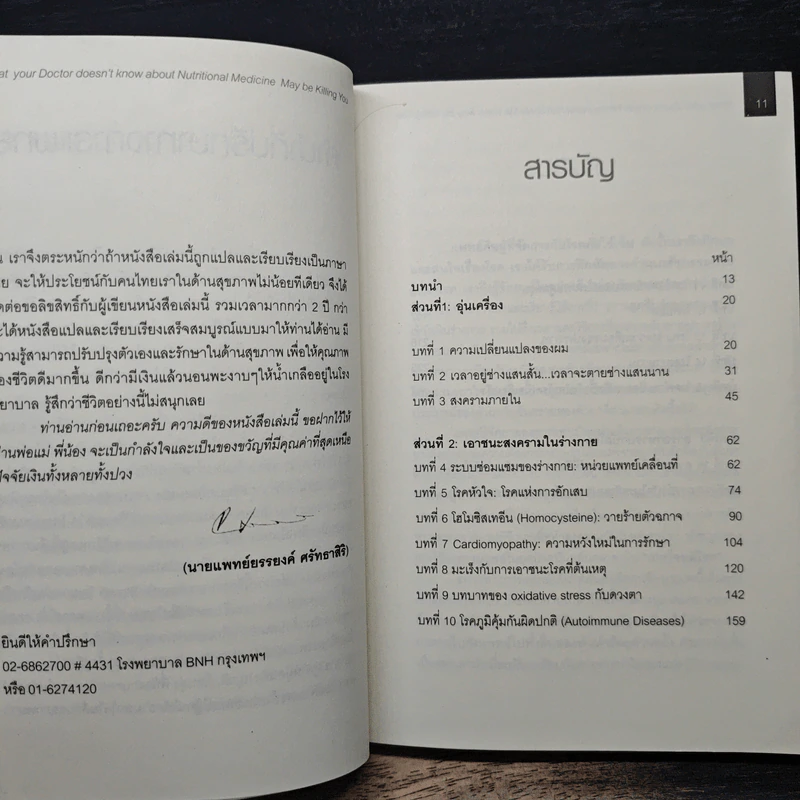 at your Doctor doesn't know about Nutritional Medicine May be Killing You
น เราจึงตระหนักว่าถ้าหนังสือเล่มนี้ถูกแปลและเรียบเรียงเป็นภาษา
ย จะให้ประโยชน์กับคนไทยเราในด้านสุขภาพไม่น้อยทีเดียว จึงได้
ดต่อขอลิขสิทธิ์กับผู้เขียนหนังสือเล่มนี้ รวมเวลามากกว่า 2 ปี กว่า
ะได้หนังสือแปลและเรียบเรียงเสร็จสมบูรณ์แบบมาให้ท่านได้อ่าน มี
วามรู้สามารถปรับปรุงตัวเองและรักษาในด้านสุขภาพ เพื่อให้คุณภาพ
องชีวิตดีมากขึ้น ดีกว่ามีเงินแล้วนอนพะงาบๆให้น้ำเกลืออยู่ในโรง
ยาบาล รู้สึกว่าชีวิตอย่างนี้ไม่สนุกเลย
ท่านอ่านก่อนเถอะครับ ความดีของหนังสือเล่มนี้ ขอฝากไว้ให้
านพ่อแม่ พี่น้อง จะเป็นกำลังใจและเป็นของขวัญที่มีคุณค่าที่สุดเหนือ
ปัจจัยเงินทั้งหลายทั้งปวง
(นายแพทย์ยรรยงค์ ศรัทธาสิริ)
ยินดีให้คำปรึกษา
02-6862700 # 4431 โรงพยาบาล BNH กรุงเทพฯ
หรือ 01-6274120
11
สารบัญ
หน้า
บทนำ 13
ส่วนที่1: อุ่นเครื่อง 20
บทที่ 1 ความเปลี่ยนแปลงของผม 20
บทที่ 2 เวลาอยู่ช่างแสนสั้น...เวลาจะตายช่างแสนนาน 31
บทที่ 3 สงครามภายใน 45
ส่วนที่ 2: เอาชนะสงครามในร่างกาย 62
บทที่ 4 ระบบซ่อมแซมของร่างกาย: หน่วยแพทย์เคลื่อนที่ 62
บทที่ 5 โรคหัวใจ: โรคแห่งการอักเสบ 74
บทที่ 6 โฮโมซิสเทอีน (Homocysteine): วายร้ายตัวฉกาจ 90
บทที่ 7 Cardiomyopathy: ความหวังใหม่ในการรักษา 104
บทที่ 8 มะเร็งกับการเอาชนะโรคที่ต้นเหตุ 120
บทที่ 9 บทบาทของ oxidative stress กับดวงตา 142
บทที่ 10 โรคภูมิคุ้มกันผิดปกติ (Autoimmune Diseases) 159